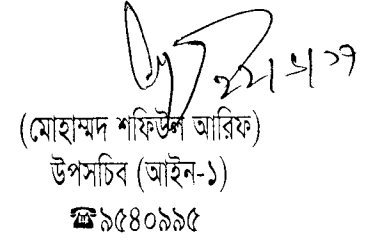 ২২|১|১৭
(মোহাম্মদ শফিউল আরিফ)
উপসচিব (আইন-১)
☎৯৫৪০৯৯৫